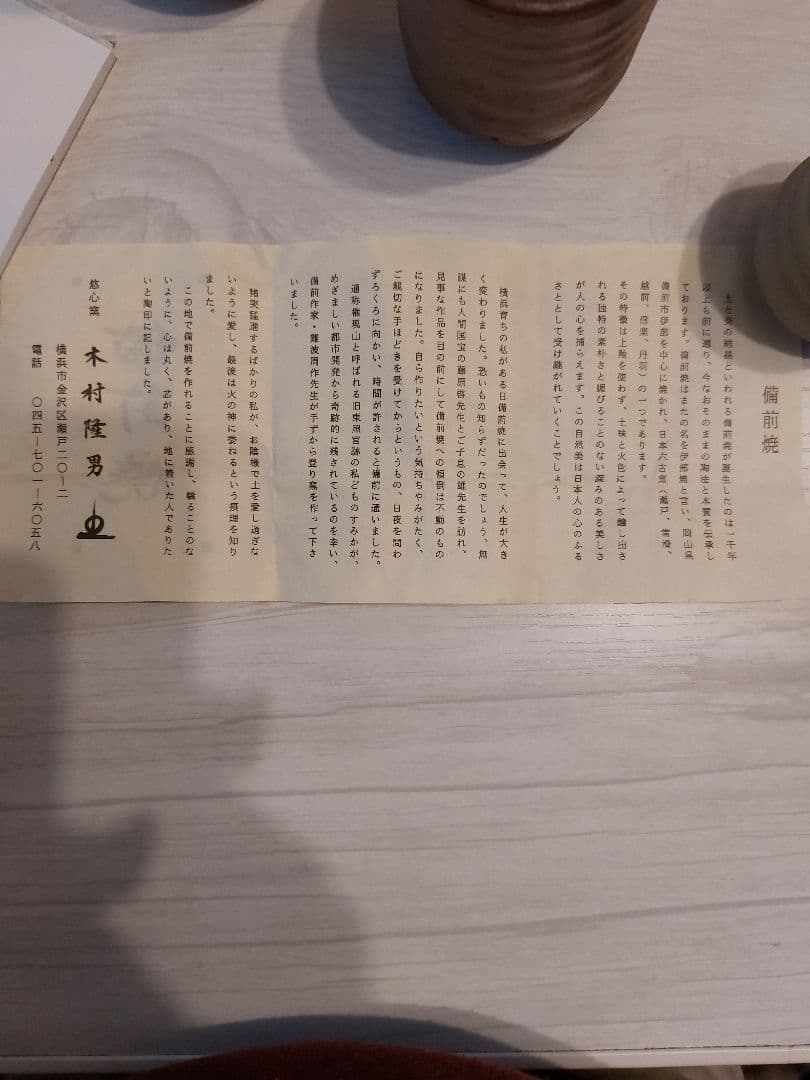 備前焼
土と炎の結晶といわれる備前焼が誕生したのは一千年
以上も前に遡り、今なおそのままの陶法と本質を伝承し
ております。備前焼はまたの名を伊部焼と言い、岡山県
備前市伊部を中心に焼かれ、日本六古窯（瀬戸、常滑、
越前、信楽、丹羽）の一つであります。
その特徴は上釉を使わず、土味と火色によって醸し出さ
れる独特の素朴さと媚びることのない深みのある美しさ
が人の心を捕らえます。この自然美は日本人の心のふる
さととして受け継がれていくことでしょう。
横浜育ちの私がある日備前焼に出会って、人生が大き
く変わりました。恐いもの知らずだったのでしょう、無
謀にも人間国宝の藤原啓先生とご子息の雄先生を訪れ、
見事な作品を目の前にして備前焼への傾倒は不動のもの
になりました。自ら作りたいという気持ちやみがたく、
ご親切な手ほどきを受けてからというもの、日夜を問わ
ずろくろに向かい、時間が許されると備前に通いました。
通称権現山と呼ばれる旧東照宮跡の私どものすみかが、
めざましい都市開発から奇跡的に残されているのを幸い、
備前作家・難波周作先生が手ずから登り窯を作って下さ
いました。
猪突猛進するばかりの私が、お陰様で土を愛し過ぎな
いように愛し、最後は火の神に委ねるという摂理を知り
ました。
この地で備前焼を作れることに感謝し、驕ることのな
いように、心は丸く、芯があり、地に着いた人でありた
いと陶印に記しました。
悠心窯 木村隆男
横浜市金沢区瀬戸二〇−二
電話 〇四五−七〇一−六〇五八